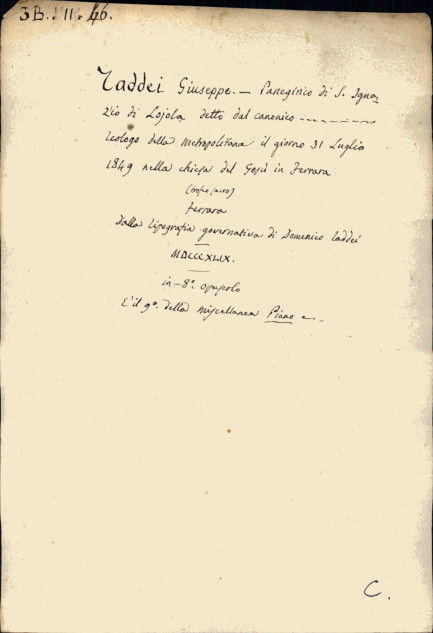 3B. II. 46.
Taddei Giuseppe. — Panegirico di S. Igna-
zio di Lojola detto dal canonico ————
teologo della metropolitana il giorno 31 Luglio
1849 nella chiesa del Gesù in Ferrara
Ferrara
Dalla tipografia governativa di Domenico Taddei
MDCCCXLIX.
in-8°. opuscolo
E' il 9°. della miscellanea Piano
C.